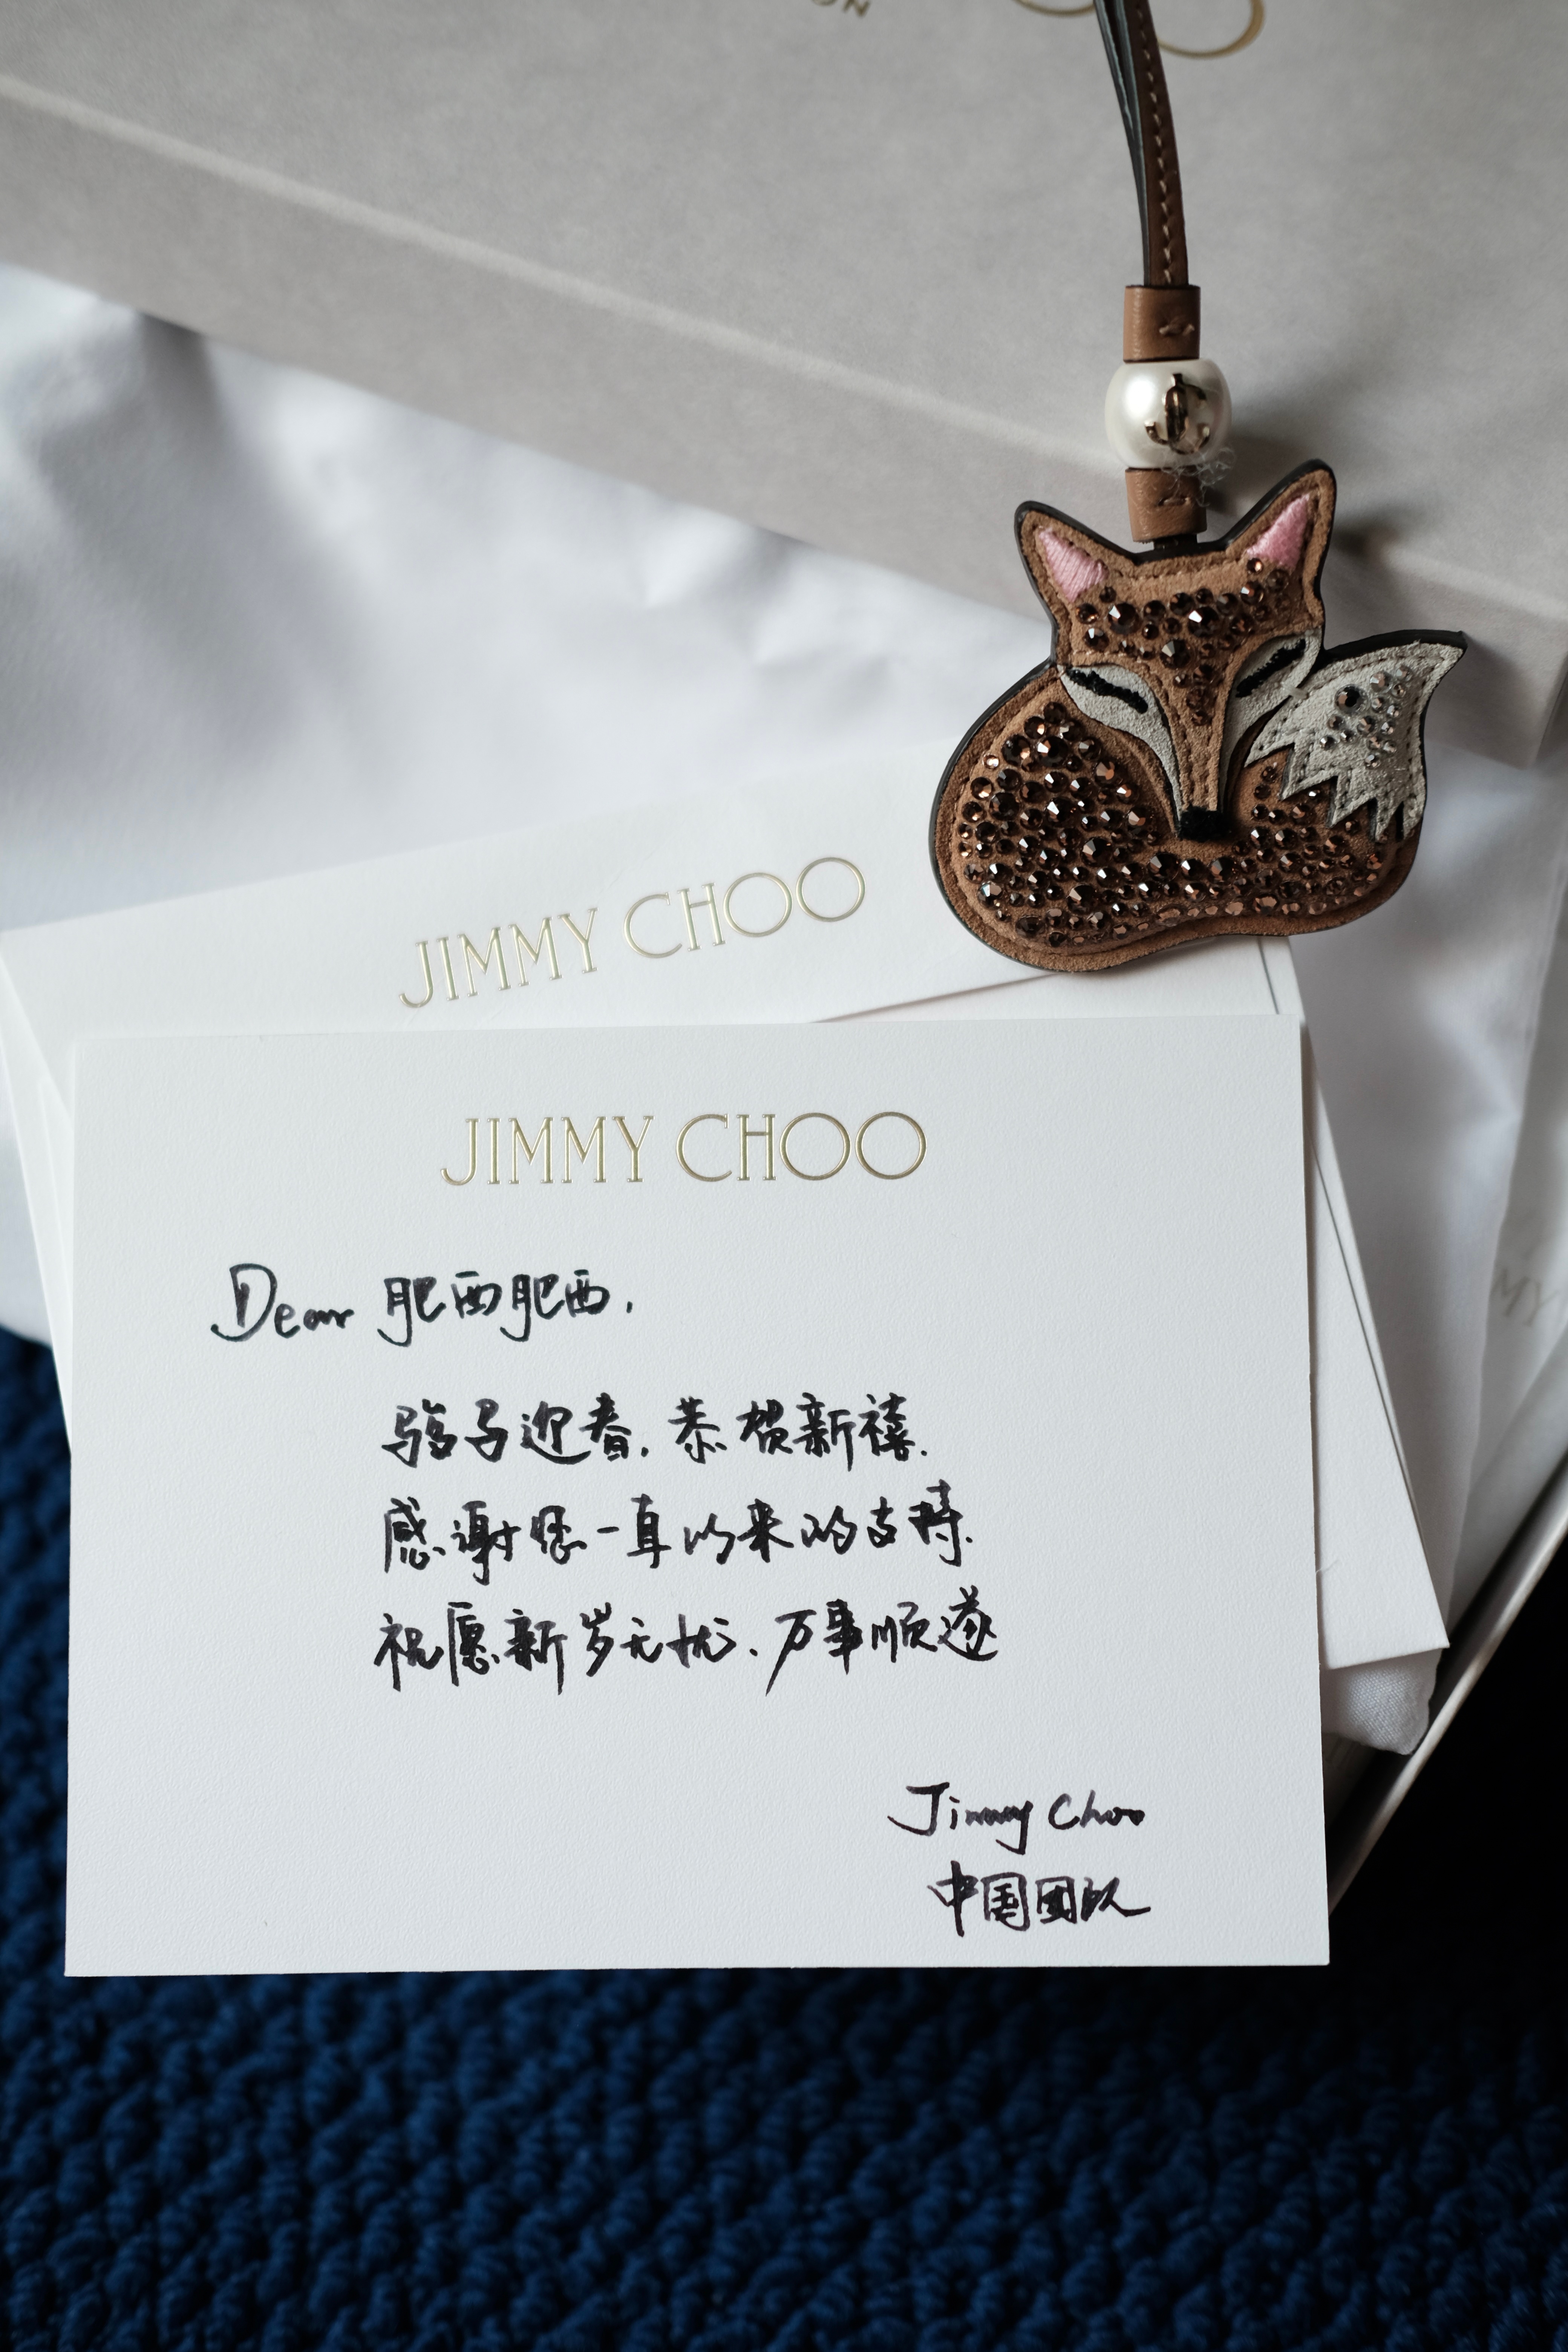 ON
JC
JIMMY CHOO
JIMMY CHOO
Dear 肥西肥西,
骏马迎春, 恭贺新禧.
感谢您一直以来的支持.
祝愿新岁无忧. 万事顺遂
Jimmy Choo
中国團队
MY